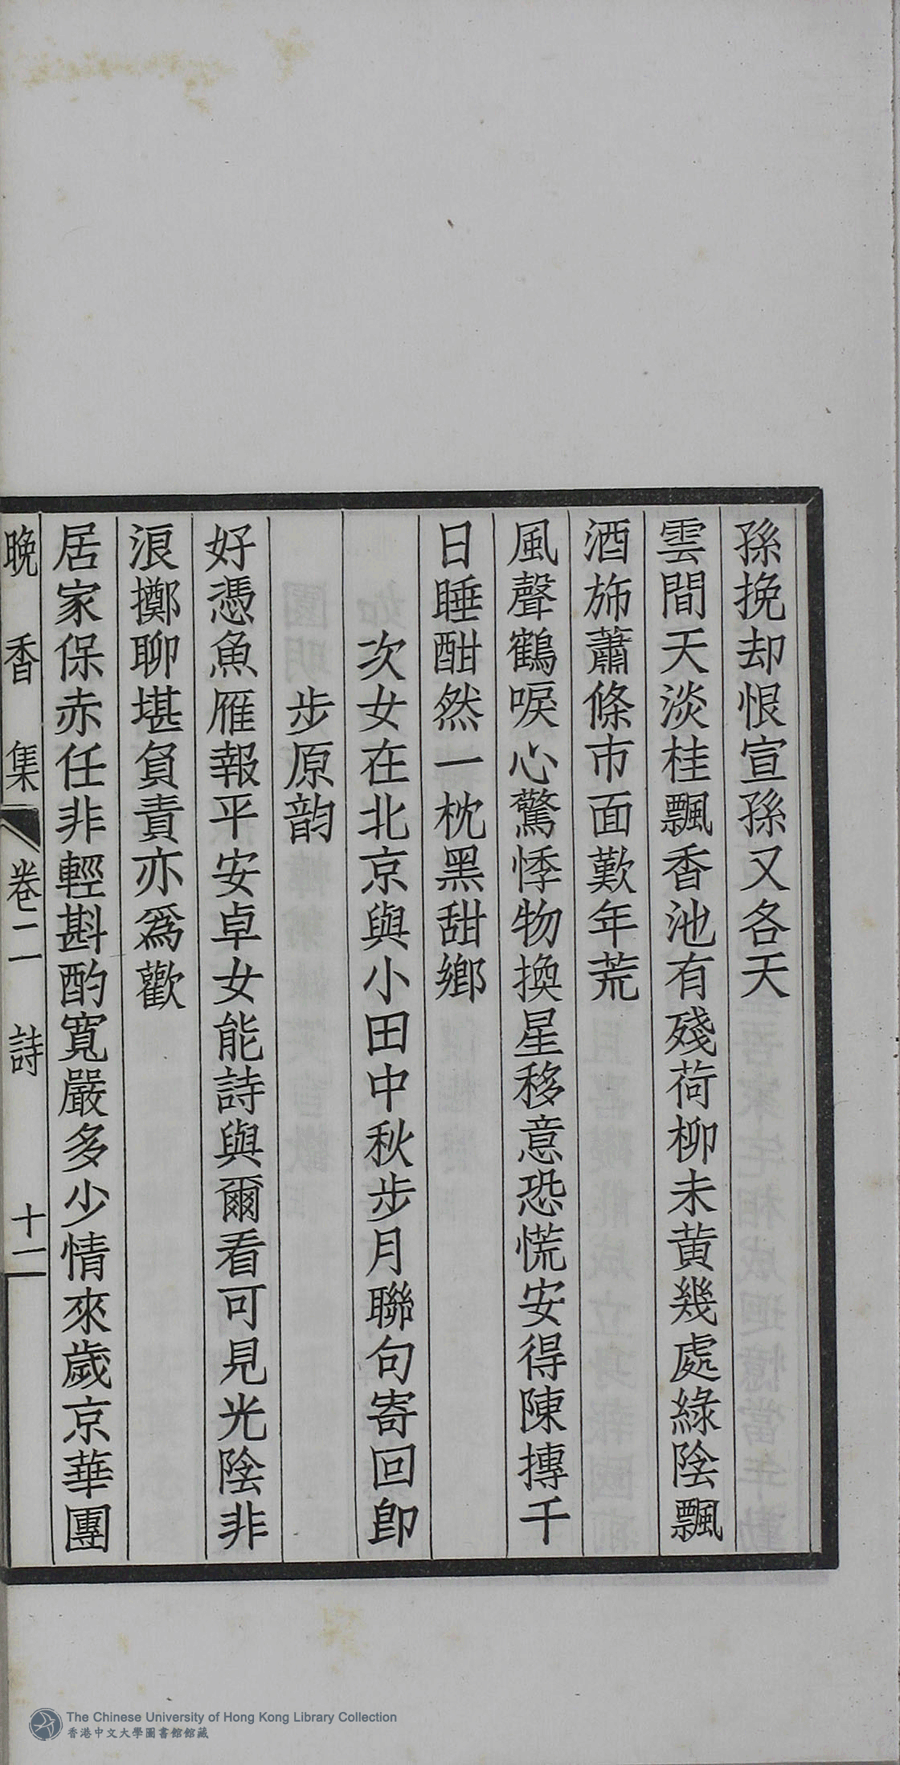 孫挽却恨宣孫又各天
雲間天淡桂飄香池有殘荷柳未黃幾處綠陰飄
酒斾蕭條市面歎年荒
風聲鶴唳心驚悸物換星移意恐慌安得陳摶千
日睡酣然一枕黑甜鄉
次女在北京與小田中秋步月聯句寄回卽
步原韵
好憑魚雁報平安卓女能詩與爾看可見光陰非
浪擲聊堪負責亦爲歡
居家保赤任非輕斟酌寬嚴多少情來歲京華團
晚香集 卷二 詩 十一
The Chinese University of Hong Kong Library Collection
香港中文大學圖書館館藏